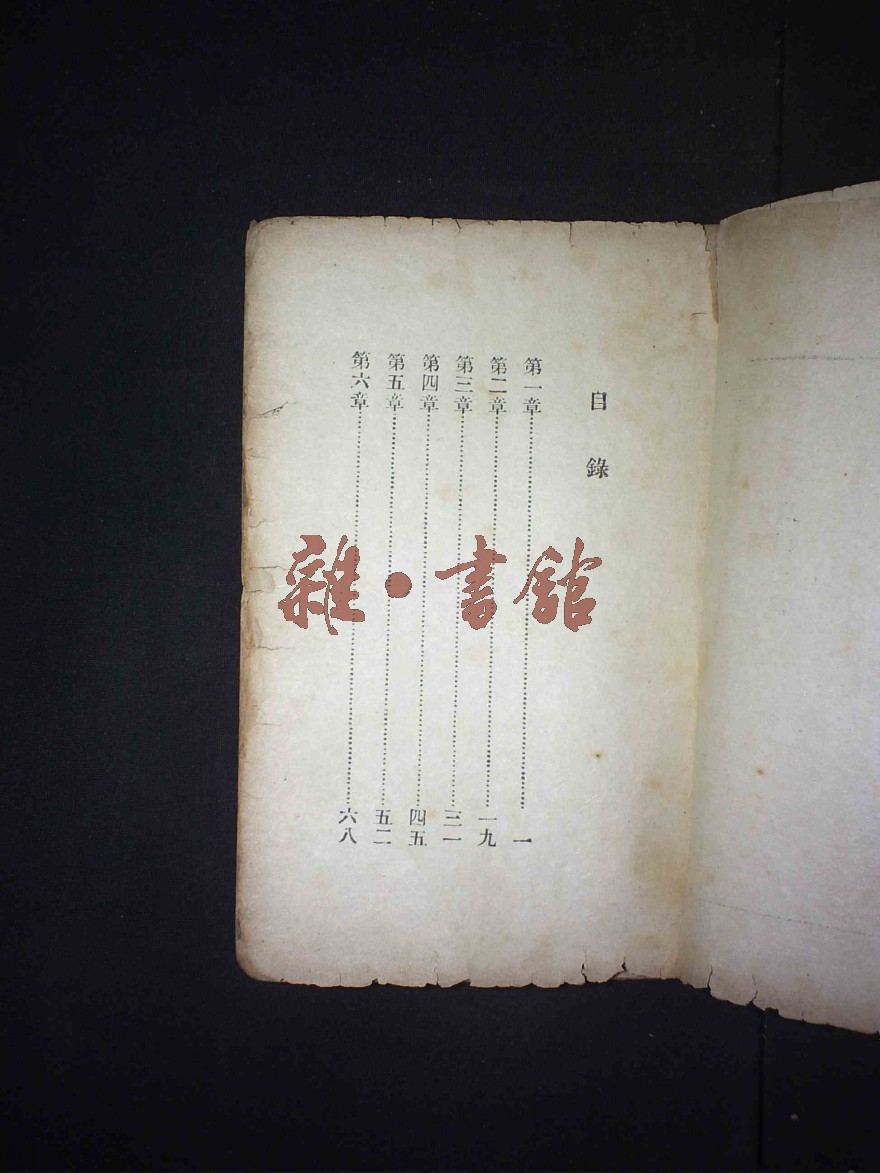 目錄
第一章……一
第二章……一九
第三章……三一
第四章……四五
第五章……五二
第六章……六八
雜·書館